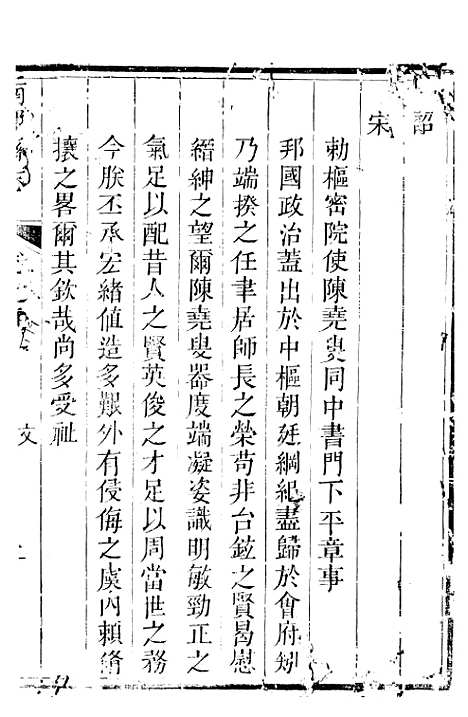 詔
宋
勅樞密院使陳堯叟同中書門下平章事
邦國政治蓋出於中樞朝廷綱紀盡歸於會府矧
乃端揆之任聿居師長之榮苟非台鉉之賢曷慰
縉紳之望爾陳堯叟器度端凝姿識明敏勁正之
氣足以配昔人之賢英俊之才足以周當世之務
今朕丕承宏緒值造多艱外有侵侮之虞內賴脩
攘之畧爾其欽哉尚多受祉
文